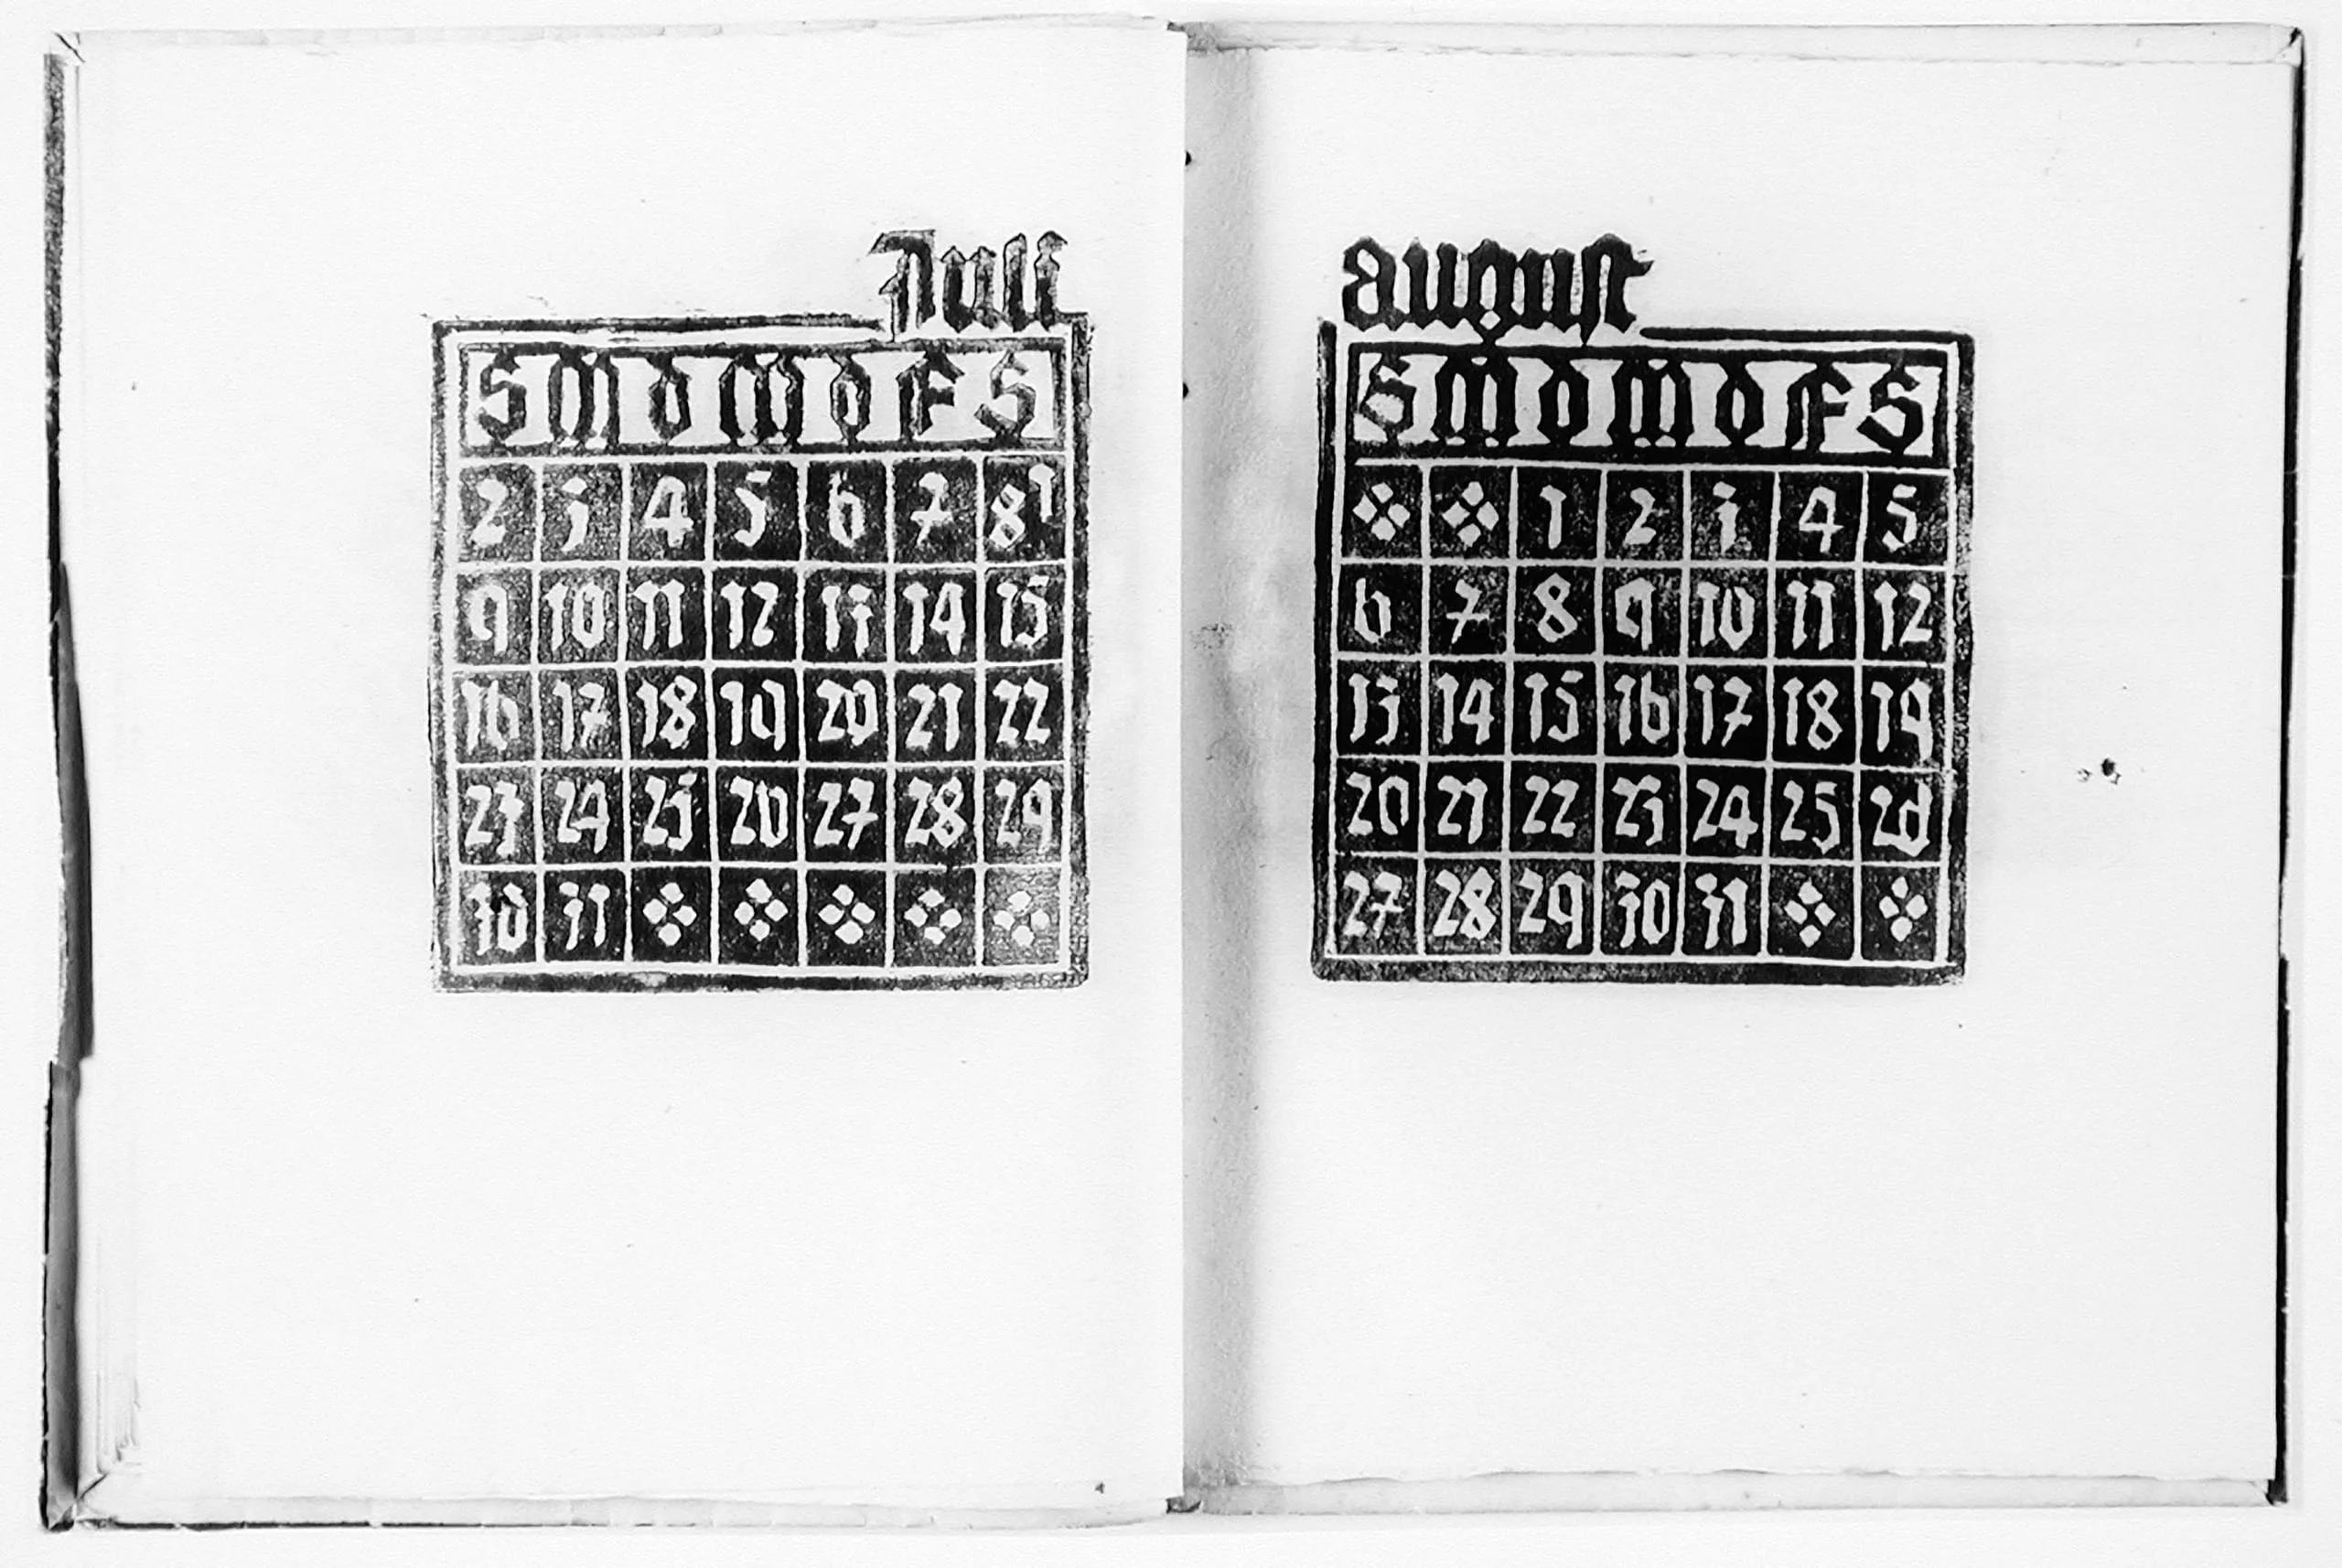 Juli
S M D M D F S
2 3 4 5 6 7 8 1
9 10 11 12 13 14 15
16 17 18 19 20 21 22
23 24 25 26 27 28 29
30 31
august
S M D M D F S
1 2 3 4 5
6 7 8 9 10 11 12
13 14 15 16 17 18 19
20 21 22 23 24 25 26
27 28 29 30 31